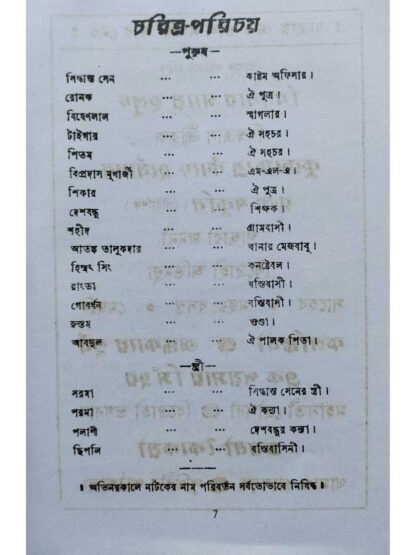 চরিত্র-পরিচয়
—পুরুষ—
সিদ্ধান্ত সেন ... ... কাষ্টম অফিসার।
রোনক ... ... ঐ পুত্র।
বিষেণলাল ... ... স্মাগলার।
টাইগার ... ... ঐ সহচর।
পিতম ... ... ঐ সহচর।
বিপ্রদাস মুখার্জী ... ... এম-এল-এ।
শিকার ... ... ঐ পুত্র।
দেশবন্ধু ... ... শিক্ষক।
শহীদ ... ... গ্রামবাসী।
আতঙ্ক তালুকদার ... ... থানার মেজবাবু।
হিম্মৎ সিং ... ... কনষ্টেবল।
রাংতা ... ... বস্তিবাসী।
গোবর্ধন ... ... বস্তিবাসী।
রুস্তম ... ... গুণ্ডা।
আবদুল ... ... ঐ পালক পিতা।
—স্ত্রী—
সরমা ... ... সিদ্ধান্ত সেনের স্ত্রী।
পরমা ... ... ঐ কন্যা।
পলাশী ... ... দেশবন্ধুর কন্যা।
ছিপলি ... ... বস্তিবাসিনী।
॥ অভিনয়কালে নাটকের নাম পরিবর্তন সর্বতোভাবে নিষিদ্ধ ॥
7